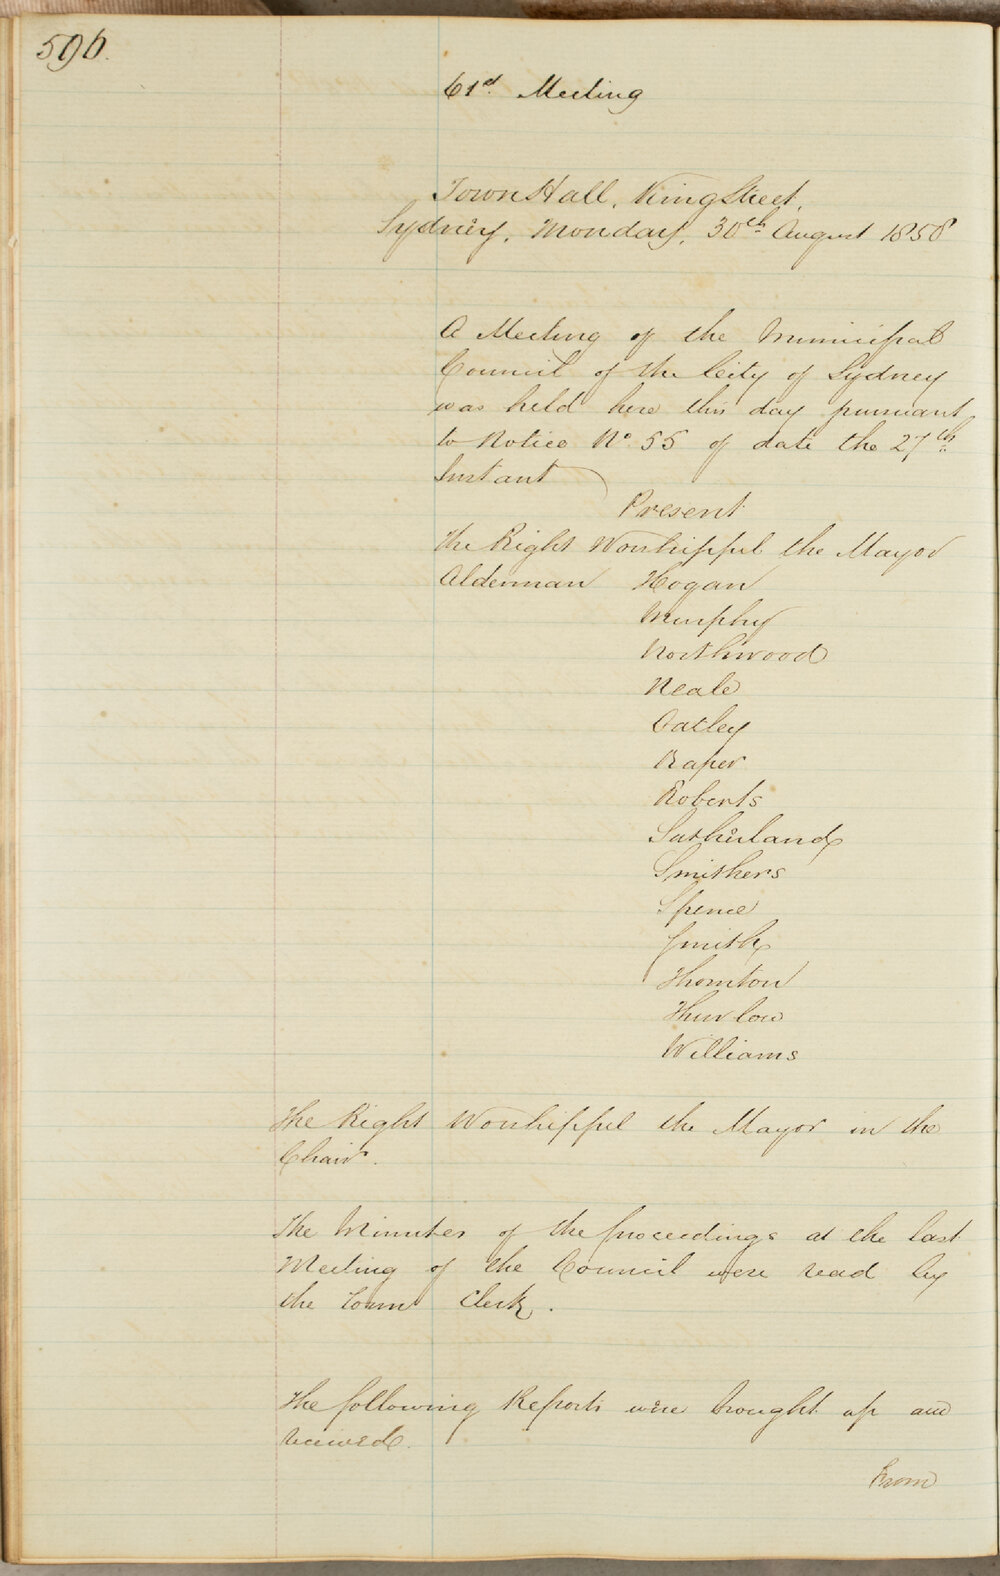 596.
61st Meeting
Town Hall, King Street,
Sydney, Monday, 30th August 1858
A Meeting of the Municipal
Council of the City of Sydney
was held here this day pursuant
to Notice No. 55 of date the 27th
Instant
Present
The Right Worshipful the Mayor
Alderman Hogan
Murphy
Northwood
Neale
Oatley
Raper
Roberts
Sutherland
Smithers
Spence
Smith
Thornton
Thurlow
Williams
The Right Worshipful the Mayor in the
Chair.
The Minutes of the proceedings at the last
Meeting of the Council were read by
the Town Clerk.
The following Reports were brought up and
received.
From